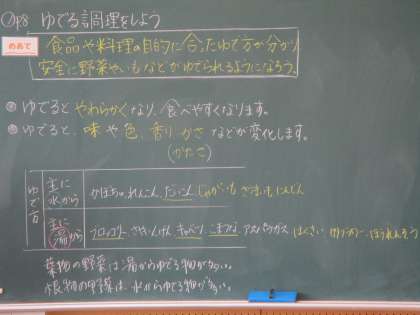 P8 ゆでる調理をしよう
めあて
食品や料理の目的に合ったゆで方が分かり
安全に野菜やいもなどがゆでられるようになろう。
ゆでるとやわらかくなり、食べやすくなります。
ゆでると、味や色、香り、かさなどが変化します。
(かたさ)
ゆで方
主に水から
かぼちゃ、れんこん、だいこん、じゃがいも さつまいも にんじん
主に湯から
ブロッコリー、さやいんげん、キャベツ、こまつな、アスパラガス はくさい カリフラワー ほうれんそう
葉物の野菜は湯からゆでる物が多い。
根物の野菜は、水からゆでる物が多い。